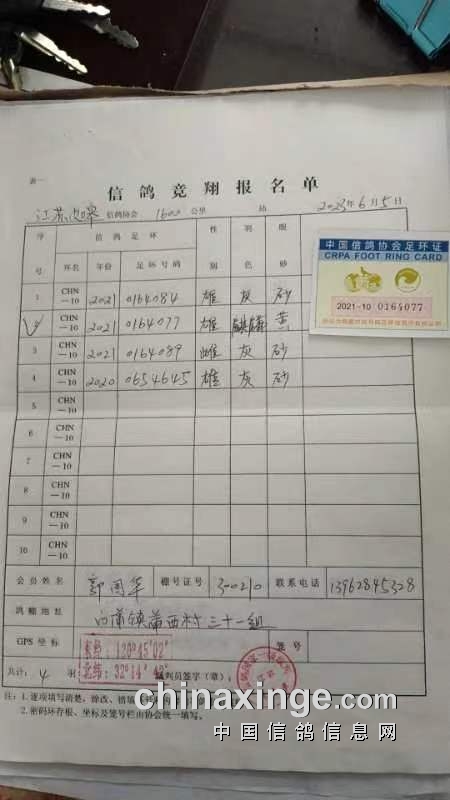 表一
信鸽竞翔报名单
江苏如皋 信鸽协会 1600 公里 站 2023年6月5日
序号 信鸽足环 性别 羽色 眼砂
环名 年份 足环号码
1 CHN-10 2021 0164084 雄 灰 砂
CHN-10 2021 0164077 雄 麒麟 黄
3 CHN-10 2021 0164089 雌 灰 砂
4 CHN-10 2020 0654645 雄 灰 砂
5 CHN-10
6 CHN-10
7 CHN-10
8 CHN-10
9 CHN-10
10 CHN-10
会员姓名 郭国华 棚号证号 300210 联系电话 13962845328
鸽棚地址 白蒲镇蒲西村三十一组
GPS坐标 东经:120°45′02″ 笼号
北纬:32°14′
共计: 4 羽 裁判员签字(章):
注:1.逐项填写清楚,
2.密码环存根、坐标及笼号栏由协会统一填写。
中国信鸽协会足环证
CRPA FOOT RING CARD
2021-10 0164077
chinaxinge.com
中国信鸽信息网